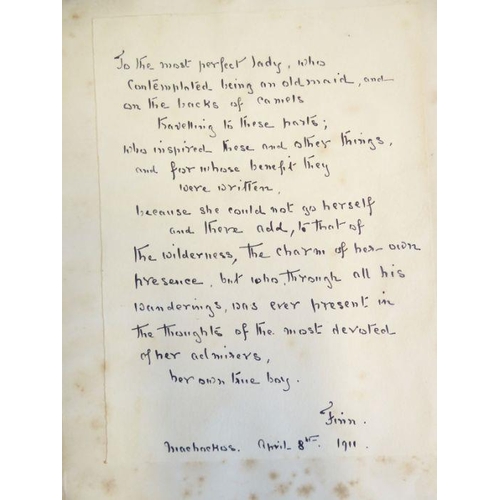 To the most perfect lady, who
contemplated being an old maid, and
on the backs of camels
travelling to these parts;
who inspired these and other things,
and for whose benefit they
were written,
because she could not go herself
and there add, to that of
the wilderness, the charm of her own
presence, but who, through all his
wanderings, was ever present in
the thoughts of the most devoted
of her admirers,
her own true boy.
Finn.
Machackos. April 8th 1911.